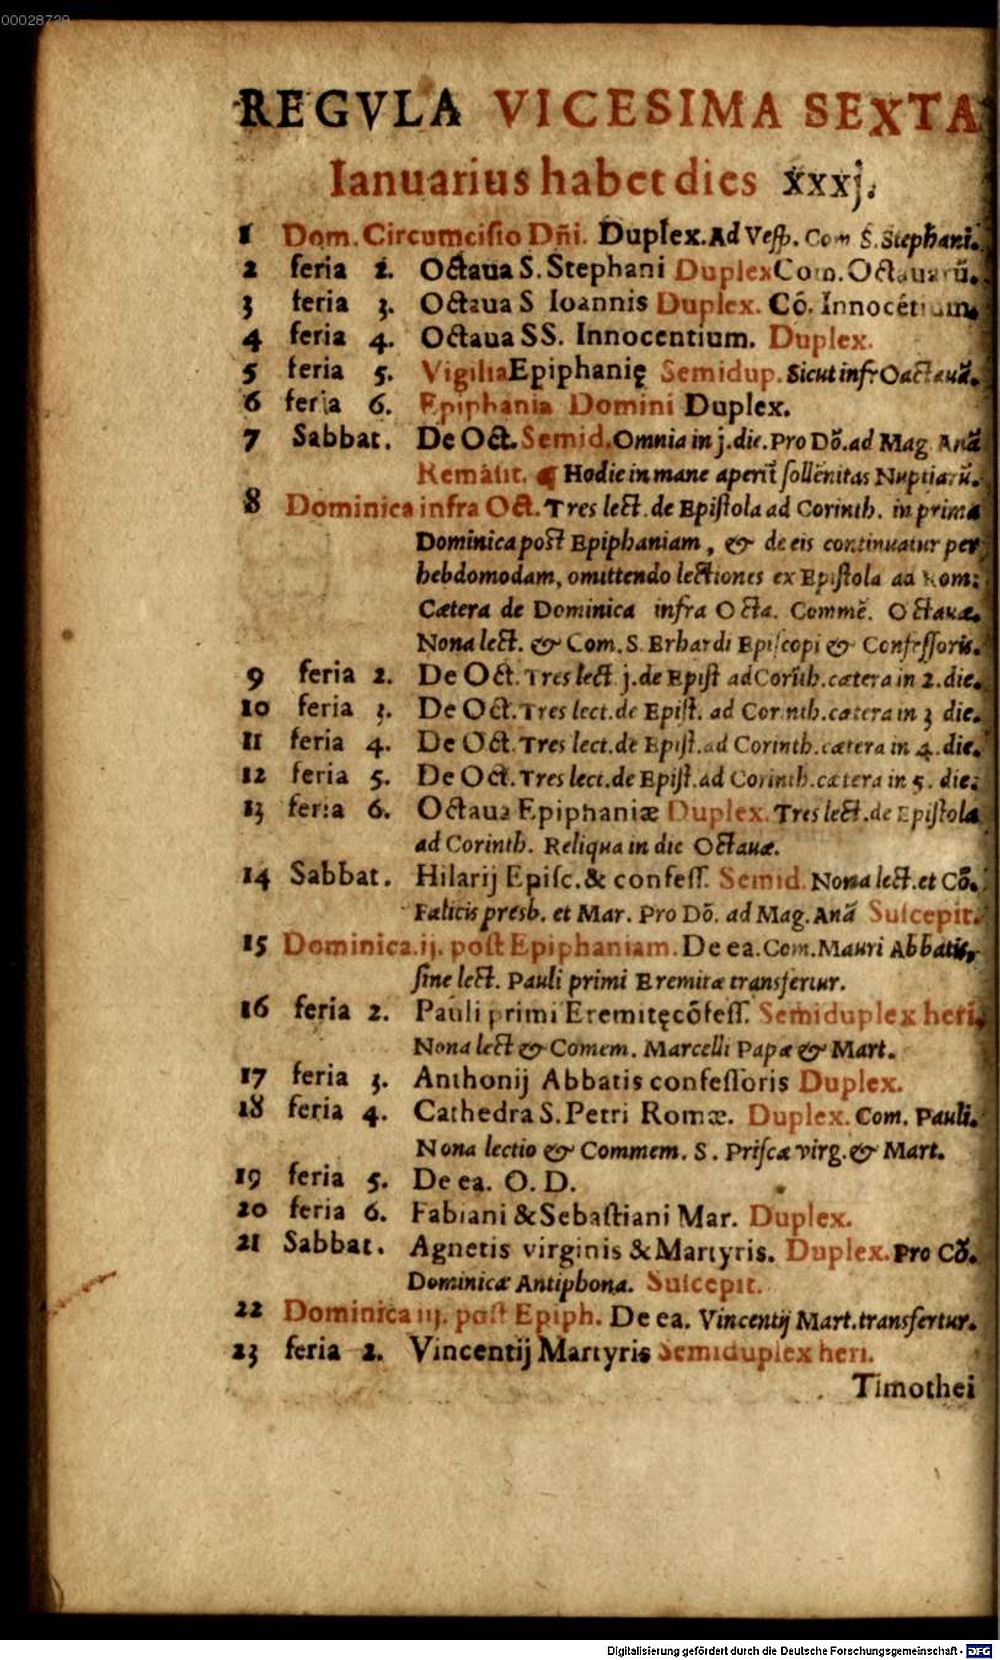 00028729
REGVLA VICESIMA SEXTA
Ianuarius habet dies xxxj.
1 Dom. Circumcisio Dñi. Duplex. Ad Vesp. Com S. Stephani.
2 feria 2. Octaua S. Stephani Duplex Com. Octauarũ.
3 feria 3. Octaua S Ioannis Duplex. Cõ. Innocétium.
4 feria 4. Octaua SS. Innocentium. Duplex.
5 feria 5. Vigilia Epiphanię Semidup. Sicut infr Oactauã.
6 feria 6. Epiphania Domini Duplex.
7 Sabbat. De Oct. Semid. Omnia in j. die. Pro Dõ. ad Mag Anã
Remãsit. ¶ Hodie in mane aperit̃ sollẽnitas Nuptiarũ.
8 Dominica infra Oct. Tres lect. de Epistola ad Corinth. in prima
Dominica post Epiphaniam, & de eis continuatur per
hebdomodam, omittendo lectiones ex Epistola ad Rom:
Cætera de Dominica infra Octa. Commẽ. Octauæ.
Nona lect. & Com. S. Erhardi Episcopi & Confessoris.
9 feria 2. De Oct. Tres lect j. de Epist ad Corĩth. cætera in 2. die.
10 feria 3. De Oct. Tres lect. de Epist. ad Corinth. cætera in 3 die.
11 feria 4. De Oct. Tres lect. de Epist. ad Corinth. cætera in 4. die.
12 feria 5. De Oct. Tres lect. de Epist. ad Corinth. cætera in 5. die:
13 feria 6. Octaua Epiphaniæ Duplex. Tres lect. de Epistola
ad Corinth. Reliqua in die Octauæ.
14 Sabbat. Hilarij Episc. & confess. Semid. Nona lect. et Cõ.
Falicis presb. et Mar. Pro Dõ. ad Mag. Anã Suscepit.
15 Dominica. ij. post Epiphaniam. De ea. Com. Mauri Abbatis,
sine lect. Pauli primi Eremitæ transfertur.
16 feria 2. Pauli primi Eremitę cõfess. Semiduplex heri,
Nona lect & Comem. Marcelli Papæ & Mart.
17 feria 3. Anthonij Abbatis confessoris Duplex.
18 feria 4. Cathedra S. Petri Romæ. Duplex. Com. Pauli.
Nona lectio & Commem. S. Priscæ virg. & Mart.
19 feria 5. De ea. O. D.
20 feria 6. Fabiani & Sebastiani Mar. Duplex.
21 Sabbat. Agnetis virginis & Martyris. Duplex. Pro Cõ.
Dominicæ Antiphona. Suscepit.
22 Dominica iij. post Epiph. De ea. Vincentij Mart. transfertur.
23 feria 2. Vincentij Martyris Semiduplex heri.
Timothei
Digitalisierung gefördert durch die Deutsche Forschungsgemeinschaft - DFG